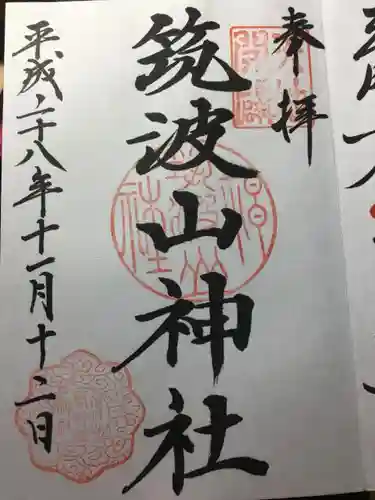 奉拝
筑波山神社
平成二十八年十一月十二日